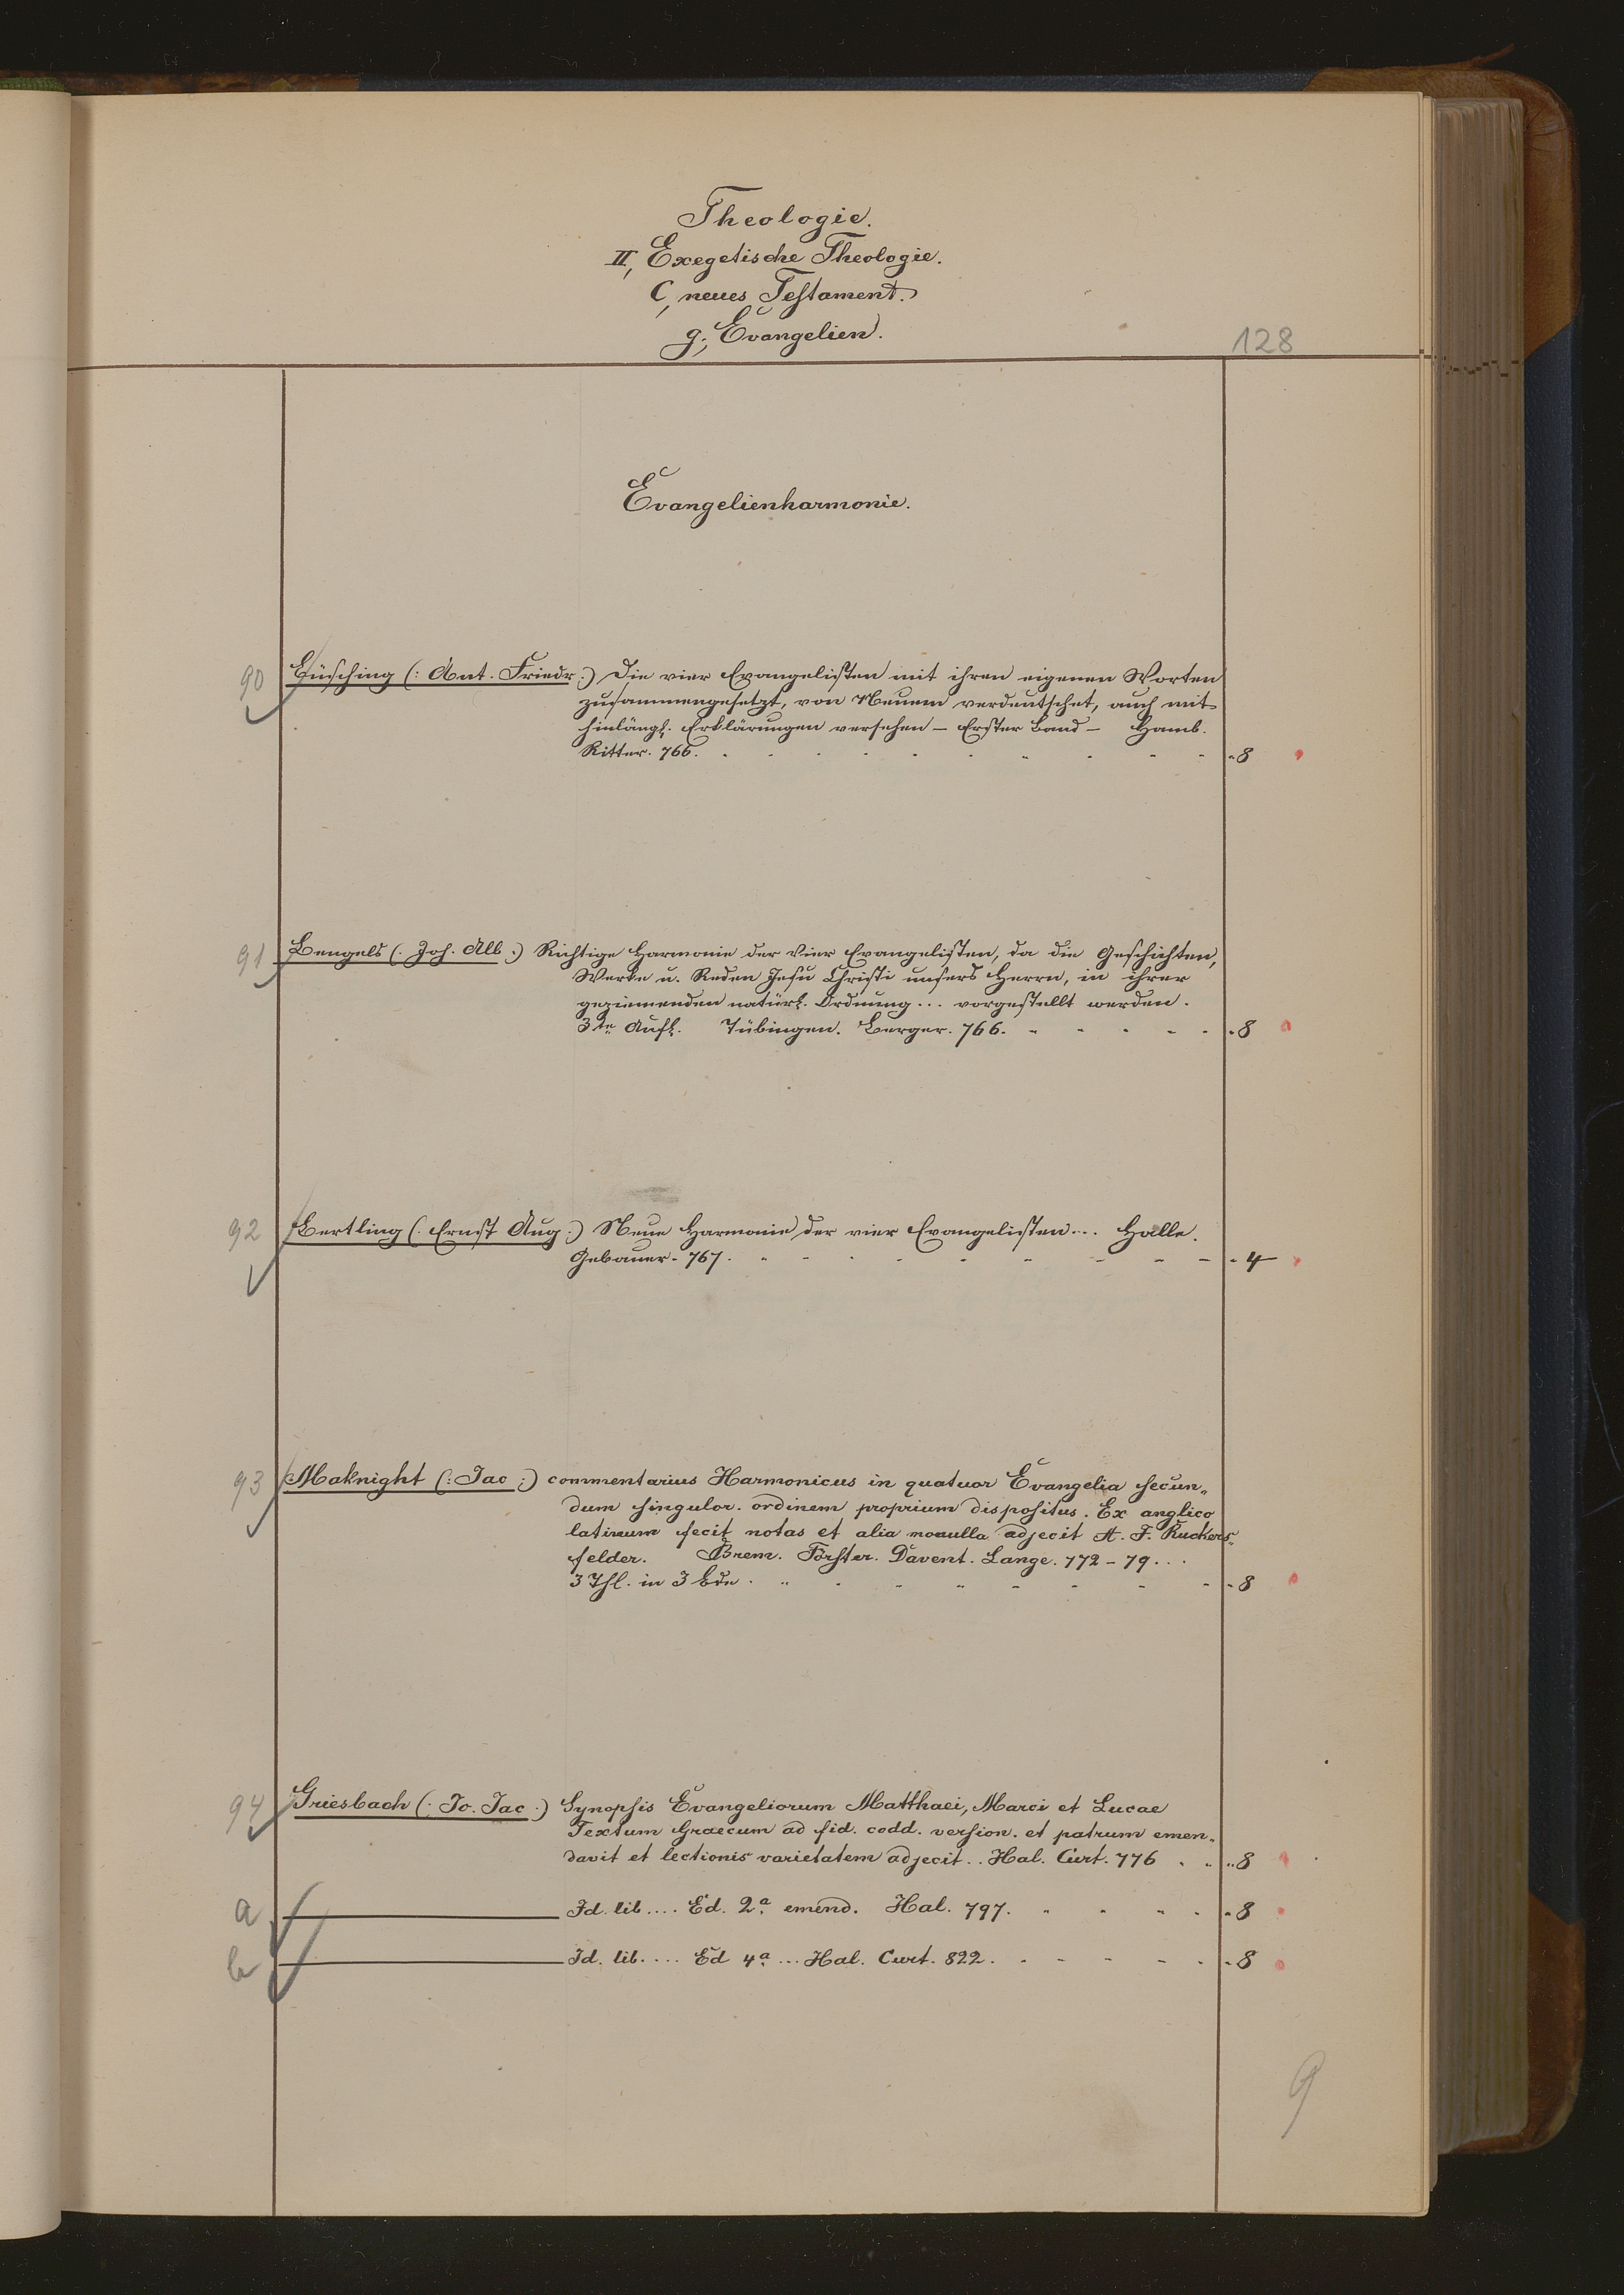 Theologie.
II, Exegetische Theologie.
C, neues Testament.
g., Evangelien.
128
Evangelienharmonie.
90 Büsching (: Ant. Friedr :) Die vier Evangelisten mit ihren eigenen Worten
zusammengesetzt, von Neuem verdeutschet, auch mit
hinlängl. Erklärungen versehen – Erster Band – Hamb.
Ritter. 766. - 8
91 Bengels (: Joh. Alb :) Richtige Harmonie der vier Evangelisten, da die Geschichten,
Werke u. Reden Jesu Christi unsers Herrn, in ihrer
geziemenden natürl. Ordnung ... vorgestellt werden.
3te Aufl. Tübingen. Berger. 766. - 8
92 Bertling (: Ernst Aug :) Neue Harmonie der vier Evangelisten ... Halle.
Gebauer - 767. - 4
93 Maknight (: Jac :) commentarius Harmonicus in quatuor Evangelia secun„
dum singulor. ordinem proprium dispositus. Ex anglico
latinum fecit notas et alia monulla adjecit A. F. Ruckers„
felder. Brem. Förster. Davent. Lange. 772 - 79...
3 Thl. in 3 Bdn. - 8
94 Griesbach (: Jo. Jac :) Synopsis Evangeliorum Matthaei, Marci et Lucae
Textum Graecum ad fid. codd. version. et patrum emen„
davit et lectionis varietatem adjecit .. Hal. Curt. 776 - 8
a Id. lib .... Ed. 2a. emend. Hal. 797. - 8
b Id. lib .... Ed 4a. ... Hal. Curt. 822. - 8
9